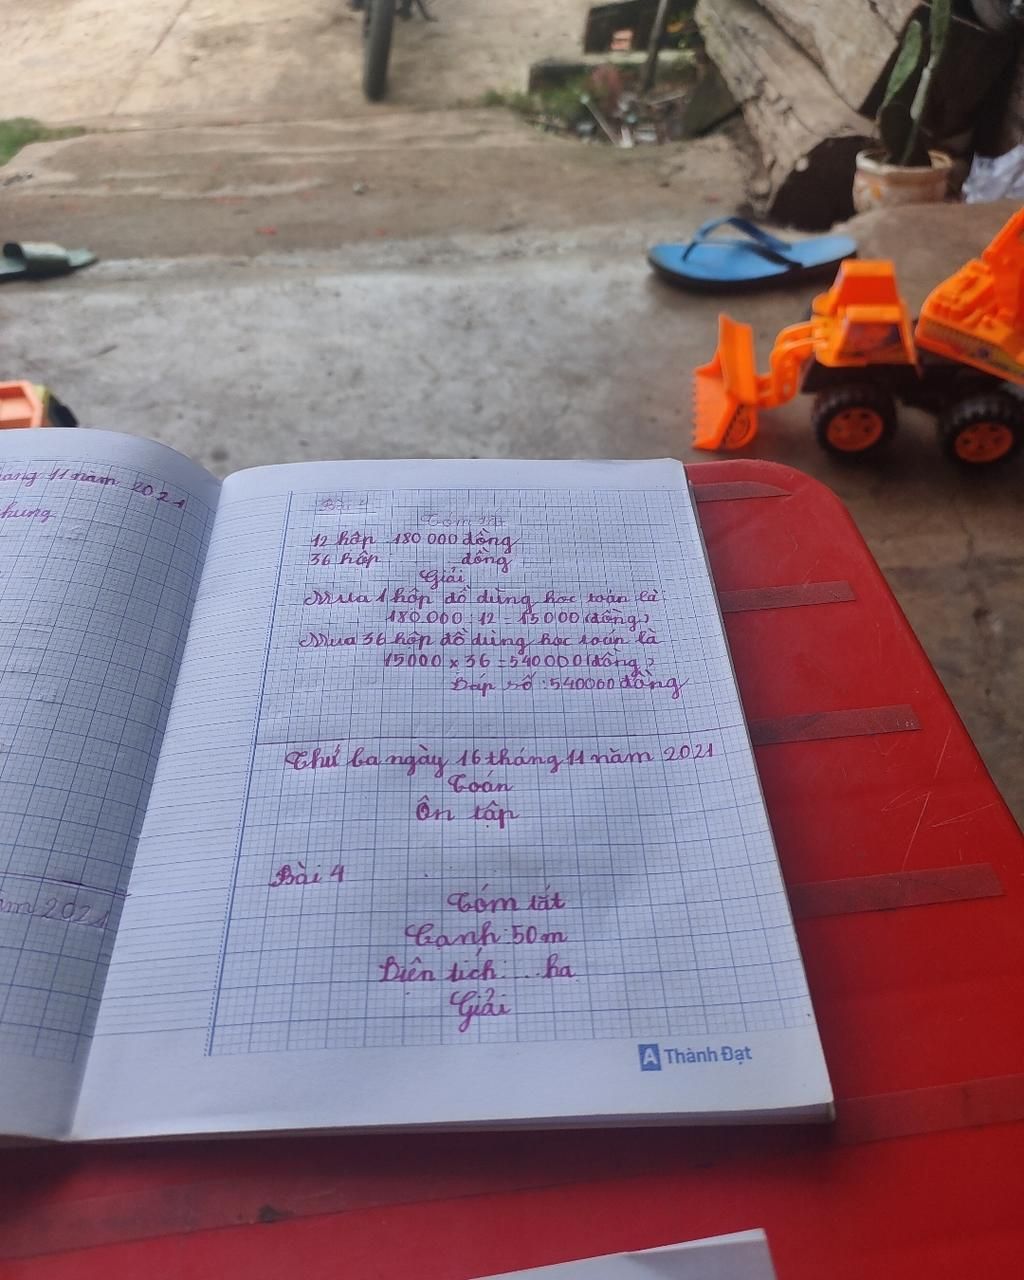 áng 11 năm 2021
hung
ăm 2021
Bài 4
Tóm tắt
12 hộp 180 000 đồng
36 hộp ...... đồng
Giải
Mua 1 hộp đồ dùng học toán là:
180.000 : 12 = 15000 (đồng)
Mua 36 hộp đồ dùng học toán là
15000 x 36 = 540000 (đồng)
Đáp số : 540000 đồng
Thứ ba ngày 16 tháng 11 năm 2021
Toán
Ôn tập
Bài 4
Tóm tắt
Cạnh: 50m
Diện tích: ... ha
Giải
A Thành Đạt